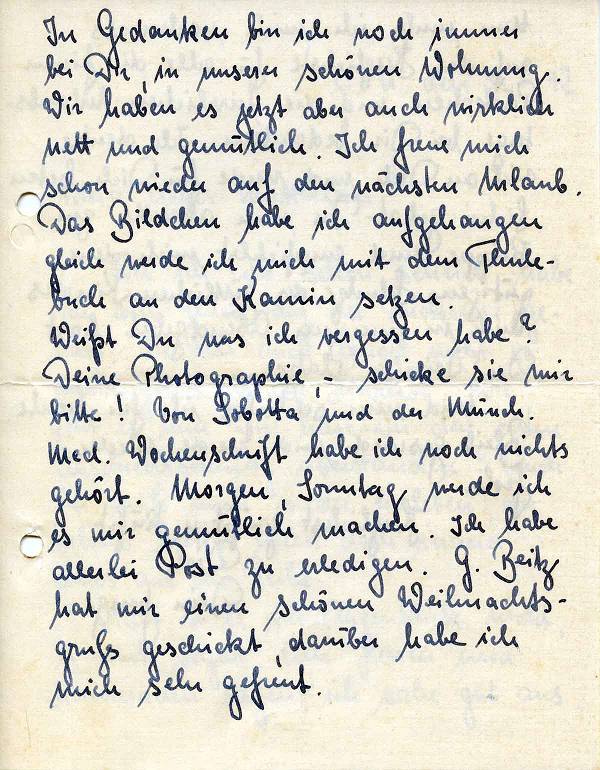 In Gedanken bin ich noch immer
bei Dir, in unserer schönen Wohnung.
Wir haben es jetzt aber auch wirklich
nett und gemütlich. Ich freue mich
schon wieder auf den nächsten Urlaub.
Das Bildchen habe ich aufgehangen
gleich werde ich mich mit dem
buch an den Kamin setzen.
Weißt Du was ich vergessen habe?
Deine Photographie, – schicke sie mir
bitte! Von Sobotta und der Münch.
Med. Wochenschrift habe ich noch nichts
gehört. Morgen, Sonntag, werde ich
es mir gemütlich machen. Ich habe
allerlei Post zu erledigen. G. Beitz
hat mir einen schönen Weihnachts-
gruß geschickt, darüber habe ich
mich sehr gefreut.